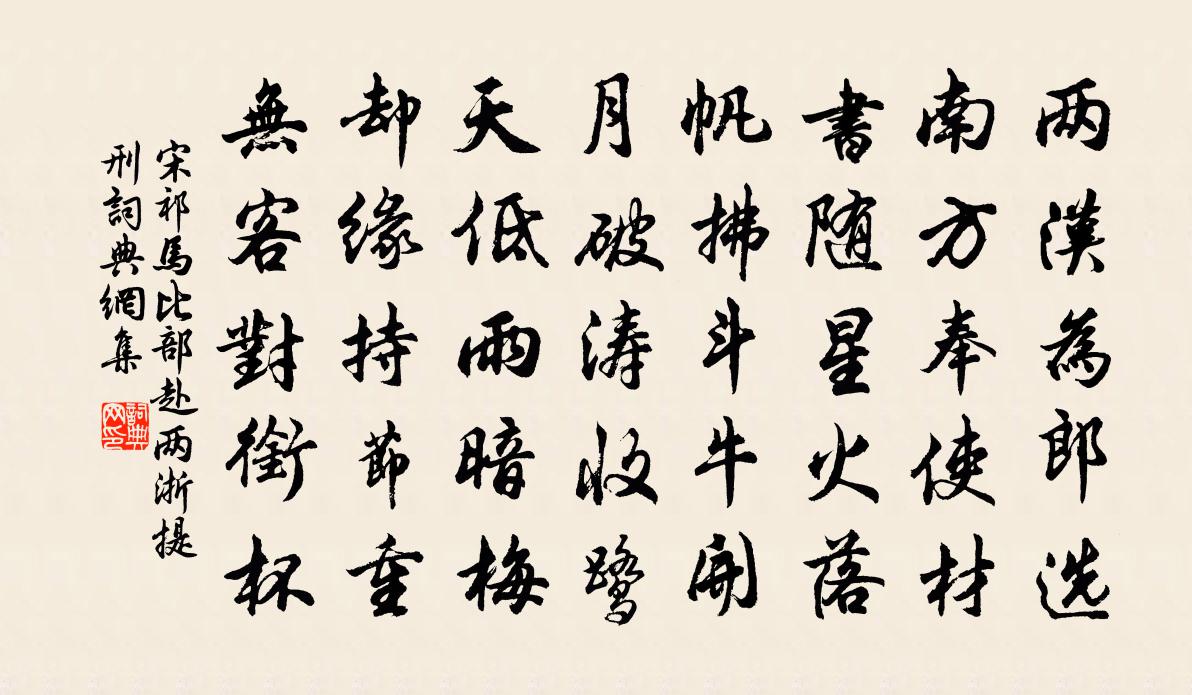 两漢為郎选
南方奉使材
書随星火落
帆拂斗牛開
月破涛收鹭
天低雨暗梅
却缘持節重
無客對銜杯
宋祁馬比部赴两浙提
刑詞典網集
詞典
网印